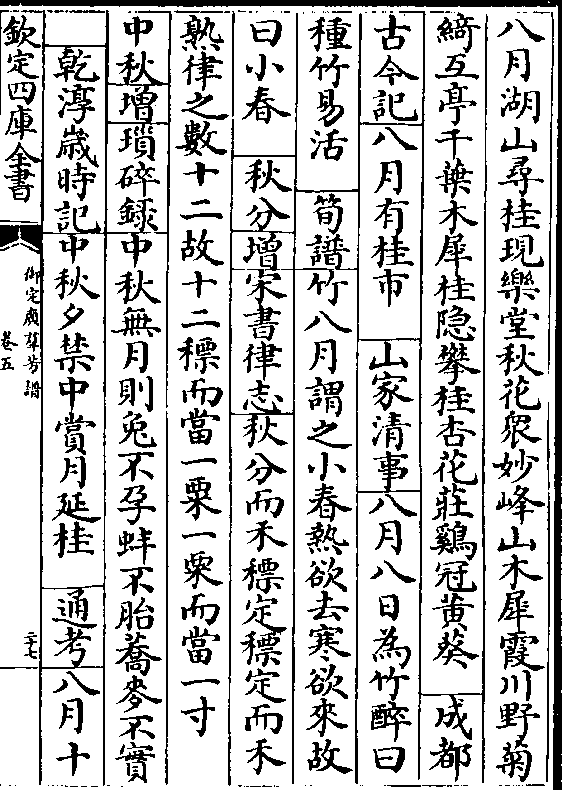 八月湖山尋桂現樂堂秋花衆妙峰山木犀霞川野菊
綺互亭千葉木犀桂隐攀桂杏花莊鷄冠黄葵 成都
古今記八月有桂市 山家清事八月八日為竹醉日
種竹易活 筍譜竹八月謂之小春熱欲去寒欲來故
曰小春 秋分增宋書律志秋分而禾穮定穮定而禾
熟律之數十二故十二穮而當一粟一粟而當一寸
中秋增瑣碎録中秋無月則兔不孕蚌不胎蕎麥不實
乾淳嵗時記中秋夕禁中賞月延桂 通考八月十
欽定四庫全書
御定廣群芳譜
卷五
二十七